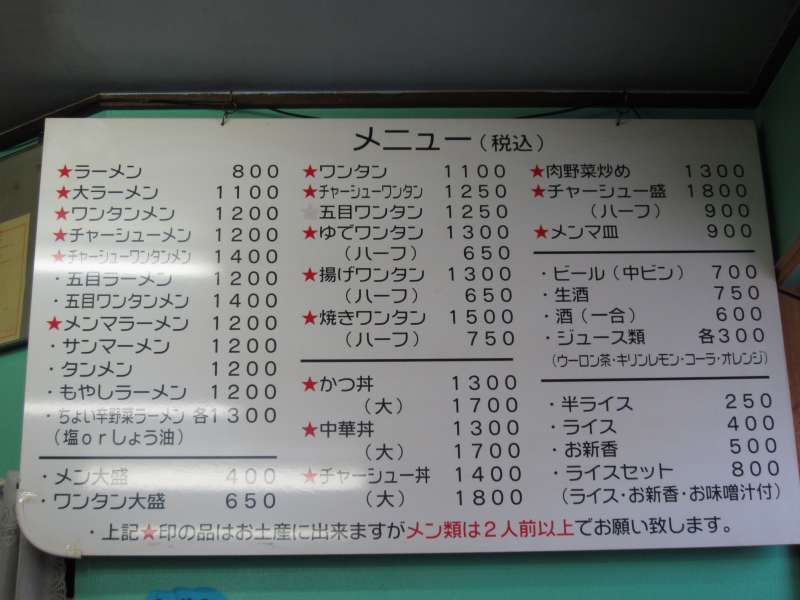 メニュー(税込)
★ラーメン 800
★大ラーメン 1100
★ワンタンメン 1200
★チャーシューメン 1200
★チャーシューワンタンメン 1400
・五目ラーメン 1200
・五目ワンタンメン 1400
★メンマラーメン 1200
・サンマーメン 1200
・タンメン 1200
・もやしラーメン 1200
・ちょい辛野菜ラーメン 各1300
(塩orしょう油)
・メン大盛 400
・ワンタン大盛 650
★ワンタン 1100
★チャーシューワンタン 1250
★五目ワンタン 1250
★ゆでワンタン 1300
(ハーフ) 650
★揚げワンタン 1300
(ハーフ) 650
★焼きワンタン 1500
(ハーフ) 750
★かつ丼 1300
(大) 1700
★中華丼 1300
(大) 1700
★チャーシュー丼 1400
(大) 1800
★肉野菜炒め 1300
★チャーシュー盛 1800
(ハーフ) 900
★メンマ皿 900
・ビール(中ビン) 700
・生酒 750
・酒(一合) 600
・ジュース類 各300
(ウーロン茶・キリンレモン・コーラ・オレンジ)
・半ライス 250
・ライス 400
・お新香 500
・ライスセット 800
(ライス・お新香・お味噌汁付)
・上記★印の品はお土産に出来ますがメン類は2人前以上でお願い致します。